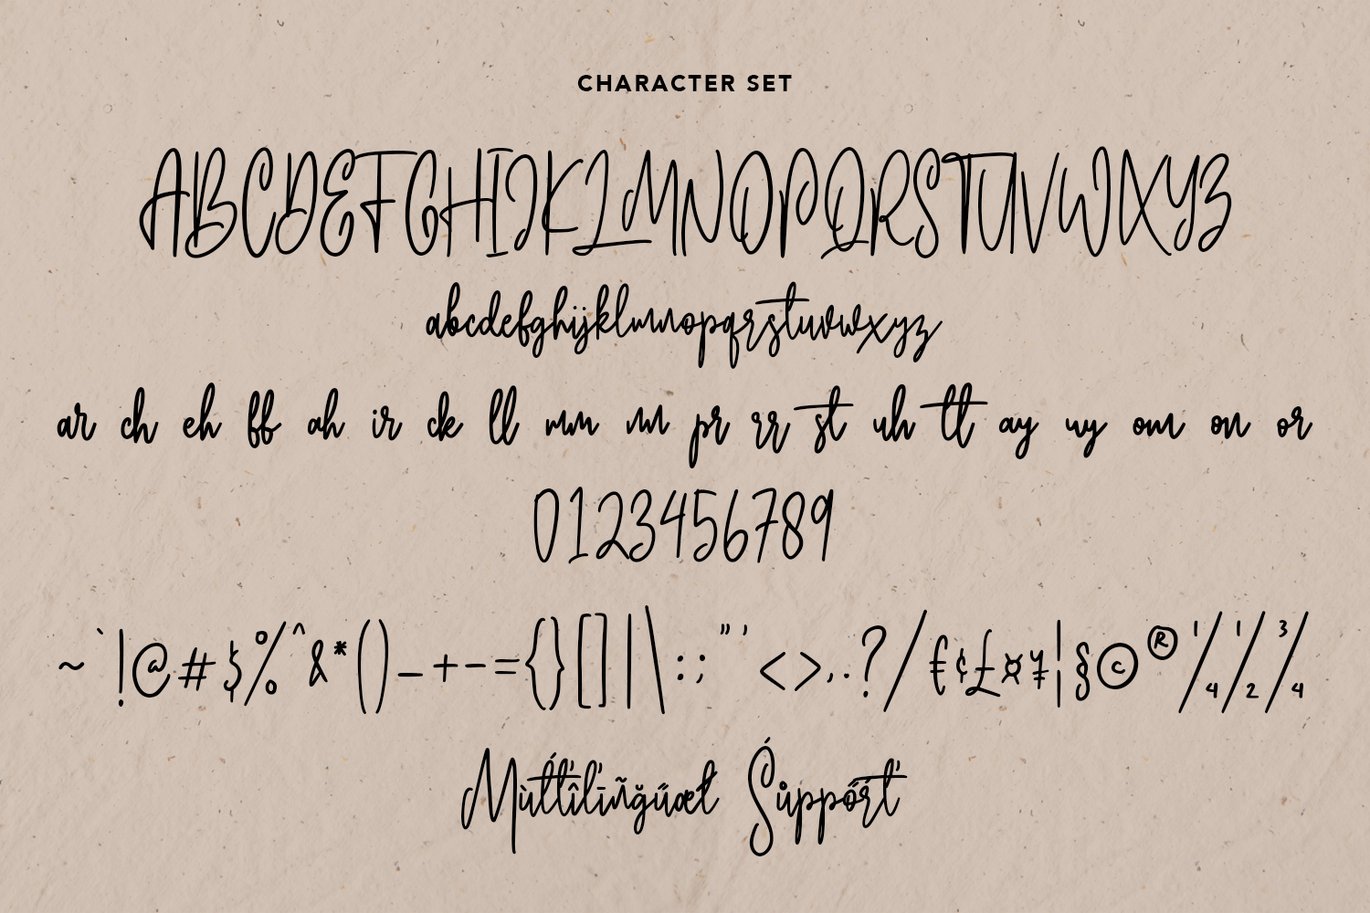 CHARACTER SET
ABCDEFGHIJKLMNOPQRSTUVWXYZ
abcdefghijklmnopqrstuvwxyz
ar ch eh ff ah ir ck ll mm nn pr rr st uh tt ay uy om on or
0123456789
~`!@#$%^&*()_+-={}[]|\:;"'<>,.?/€¢£¤¥¦§©®¼½¾